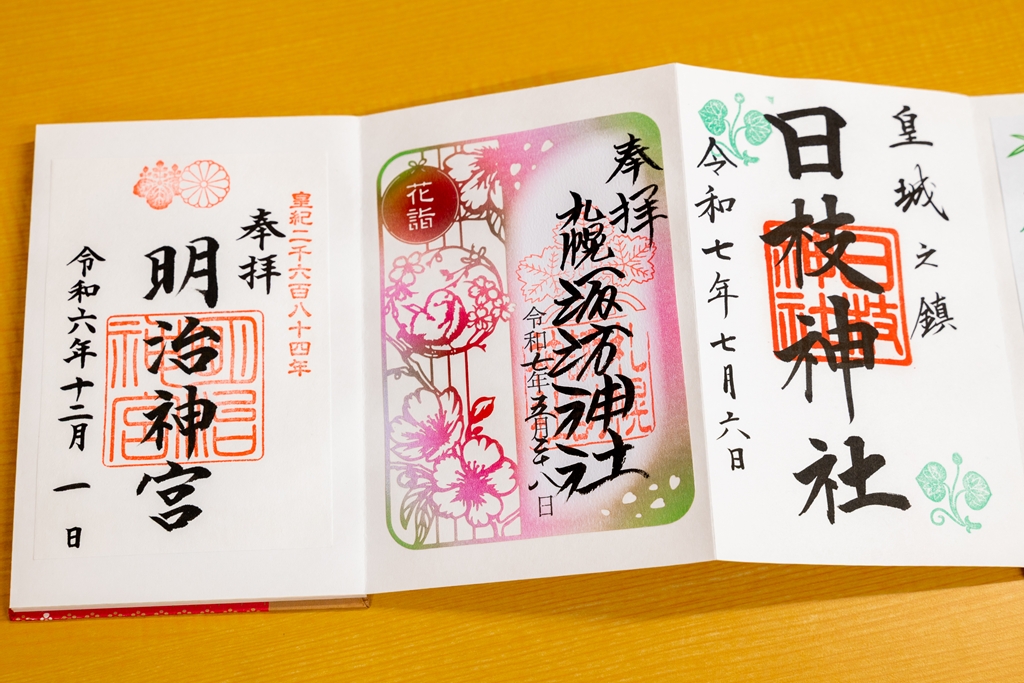 皇紀二千六百八十四年
奉拝
明治神宮
明治神宮
令和六年十二月一日
花詣
奉拝
札幌諏訪神社
令和七年五月二十八日
皇城之鎮
日枝神社
日枝神社
令和七年七月六日